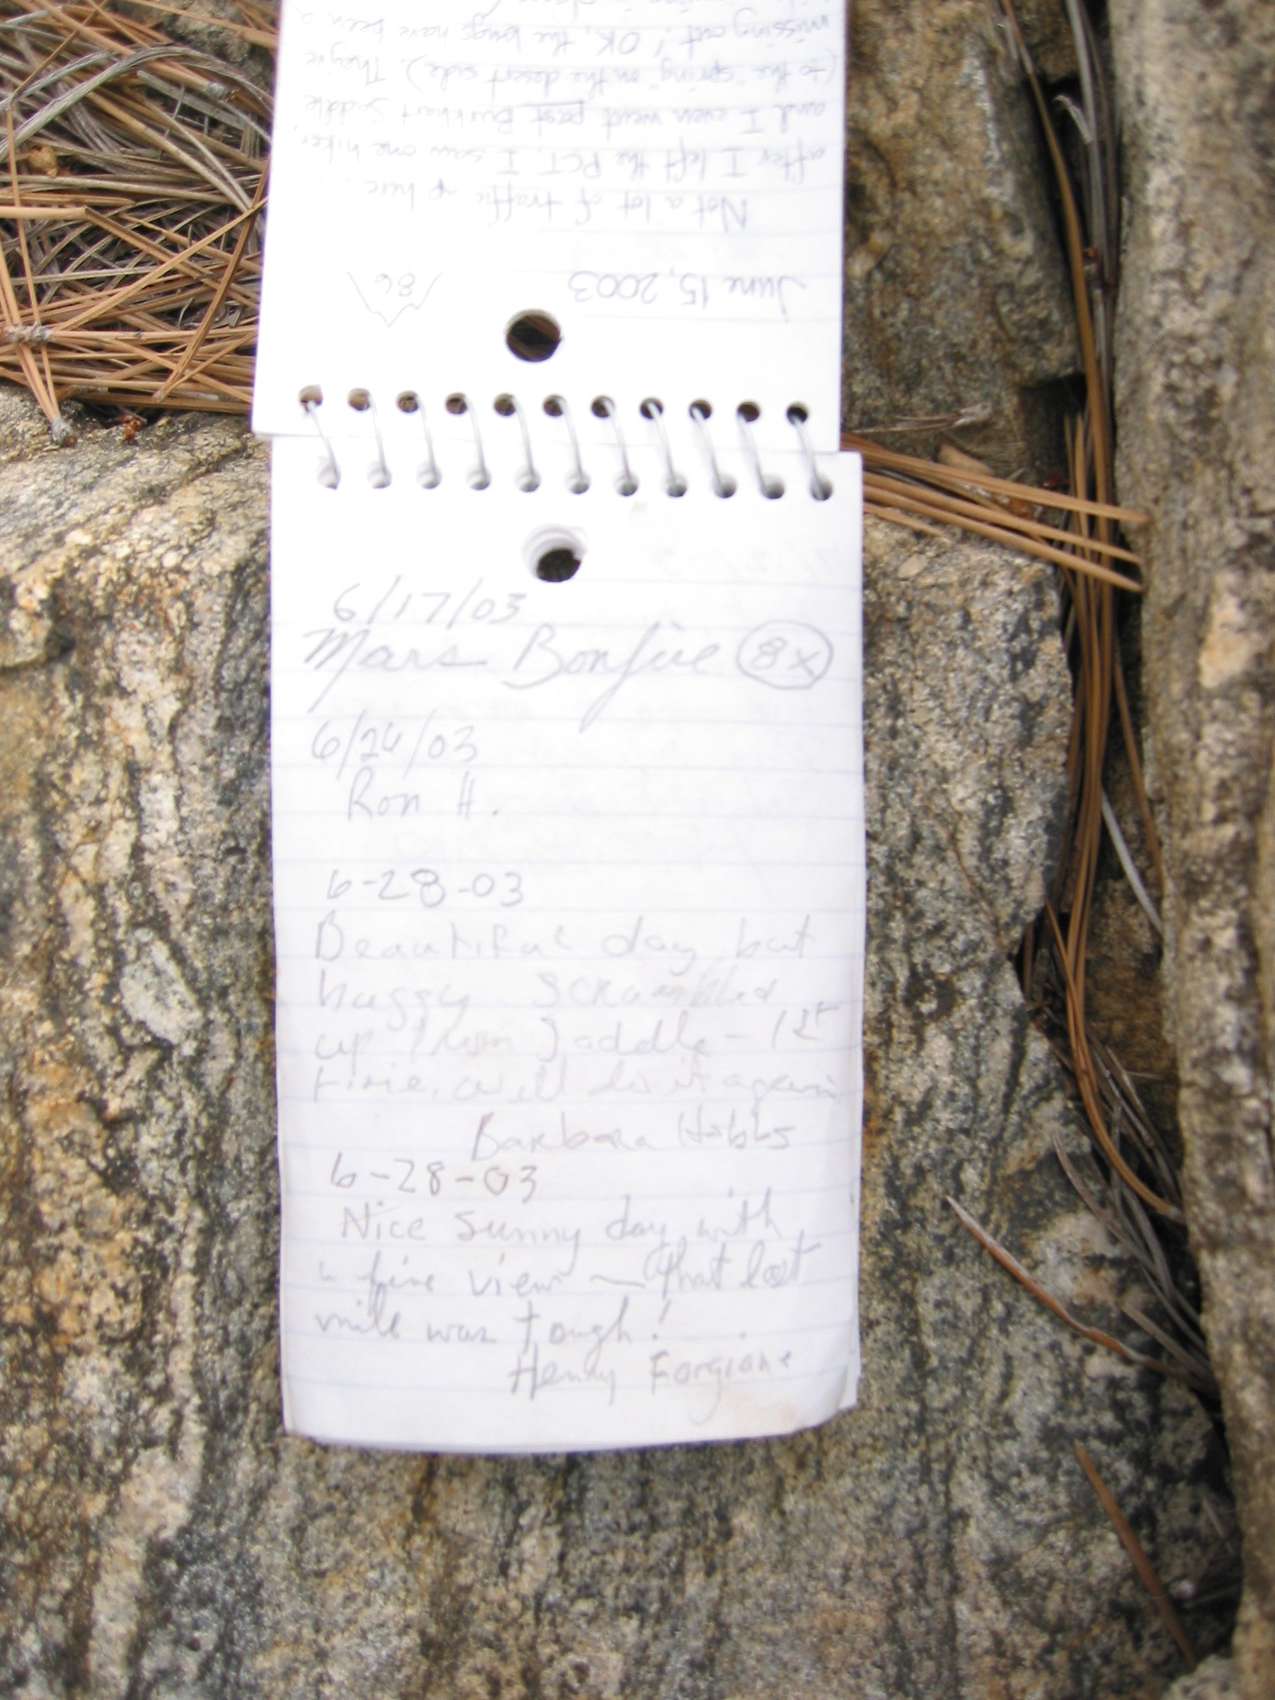 June 15, 2003 86
Not a lot of traffic up here.
after I left the PCT, I saw one hiker,
and I even went past Burkhart Saddle
(to the spring on the desert side). They're
missing out! OK, the bugs have been a
6/17/03
Mars Bonfire 8x
6/26/03
Ron H.
6-28-03
Beautiful day but
buggy. Scrambled
up from Saddle - 1st
time. will do it again
Barbara Hobbs
6-28-03
Nice sunny day with
a fine view — that last
mile was tough!
Henry Forgione